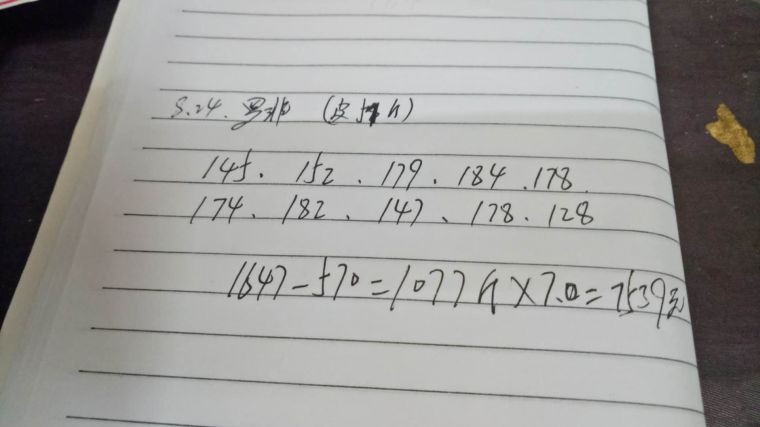 8.24. 罗非 (皮57斤)
145. 152. 179. 184. 178.
174. 182. 147. 178. 128
1647-570=1077斤×7.0=7539元